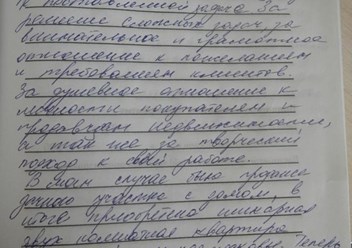 к поставленной задаче За
решение сложных задач за
внимательное и грамотное
отношение к пожеланиям
и требованиям клиентов.
За душевное отношение к
личности покупателем и
продавцам недвижимости,
а так же за творческий
поход к своей работе.
В моём случае была продажа
дачного участка с домом, в
итоге приобретена шикарная
двух комнатная квартира
Теперь